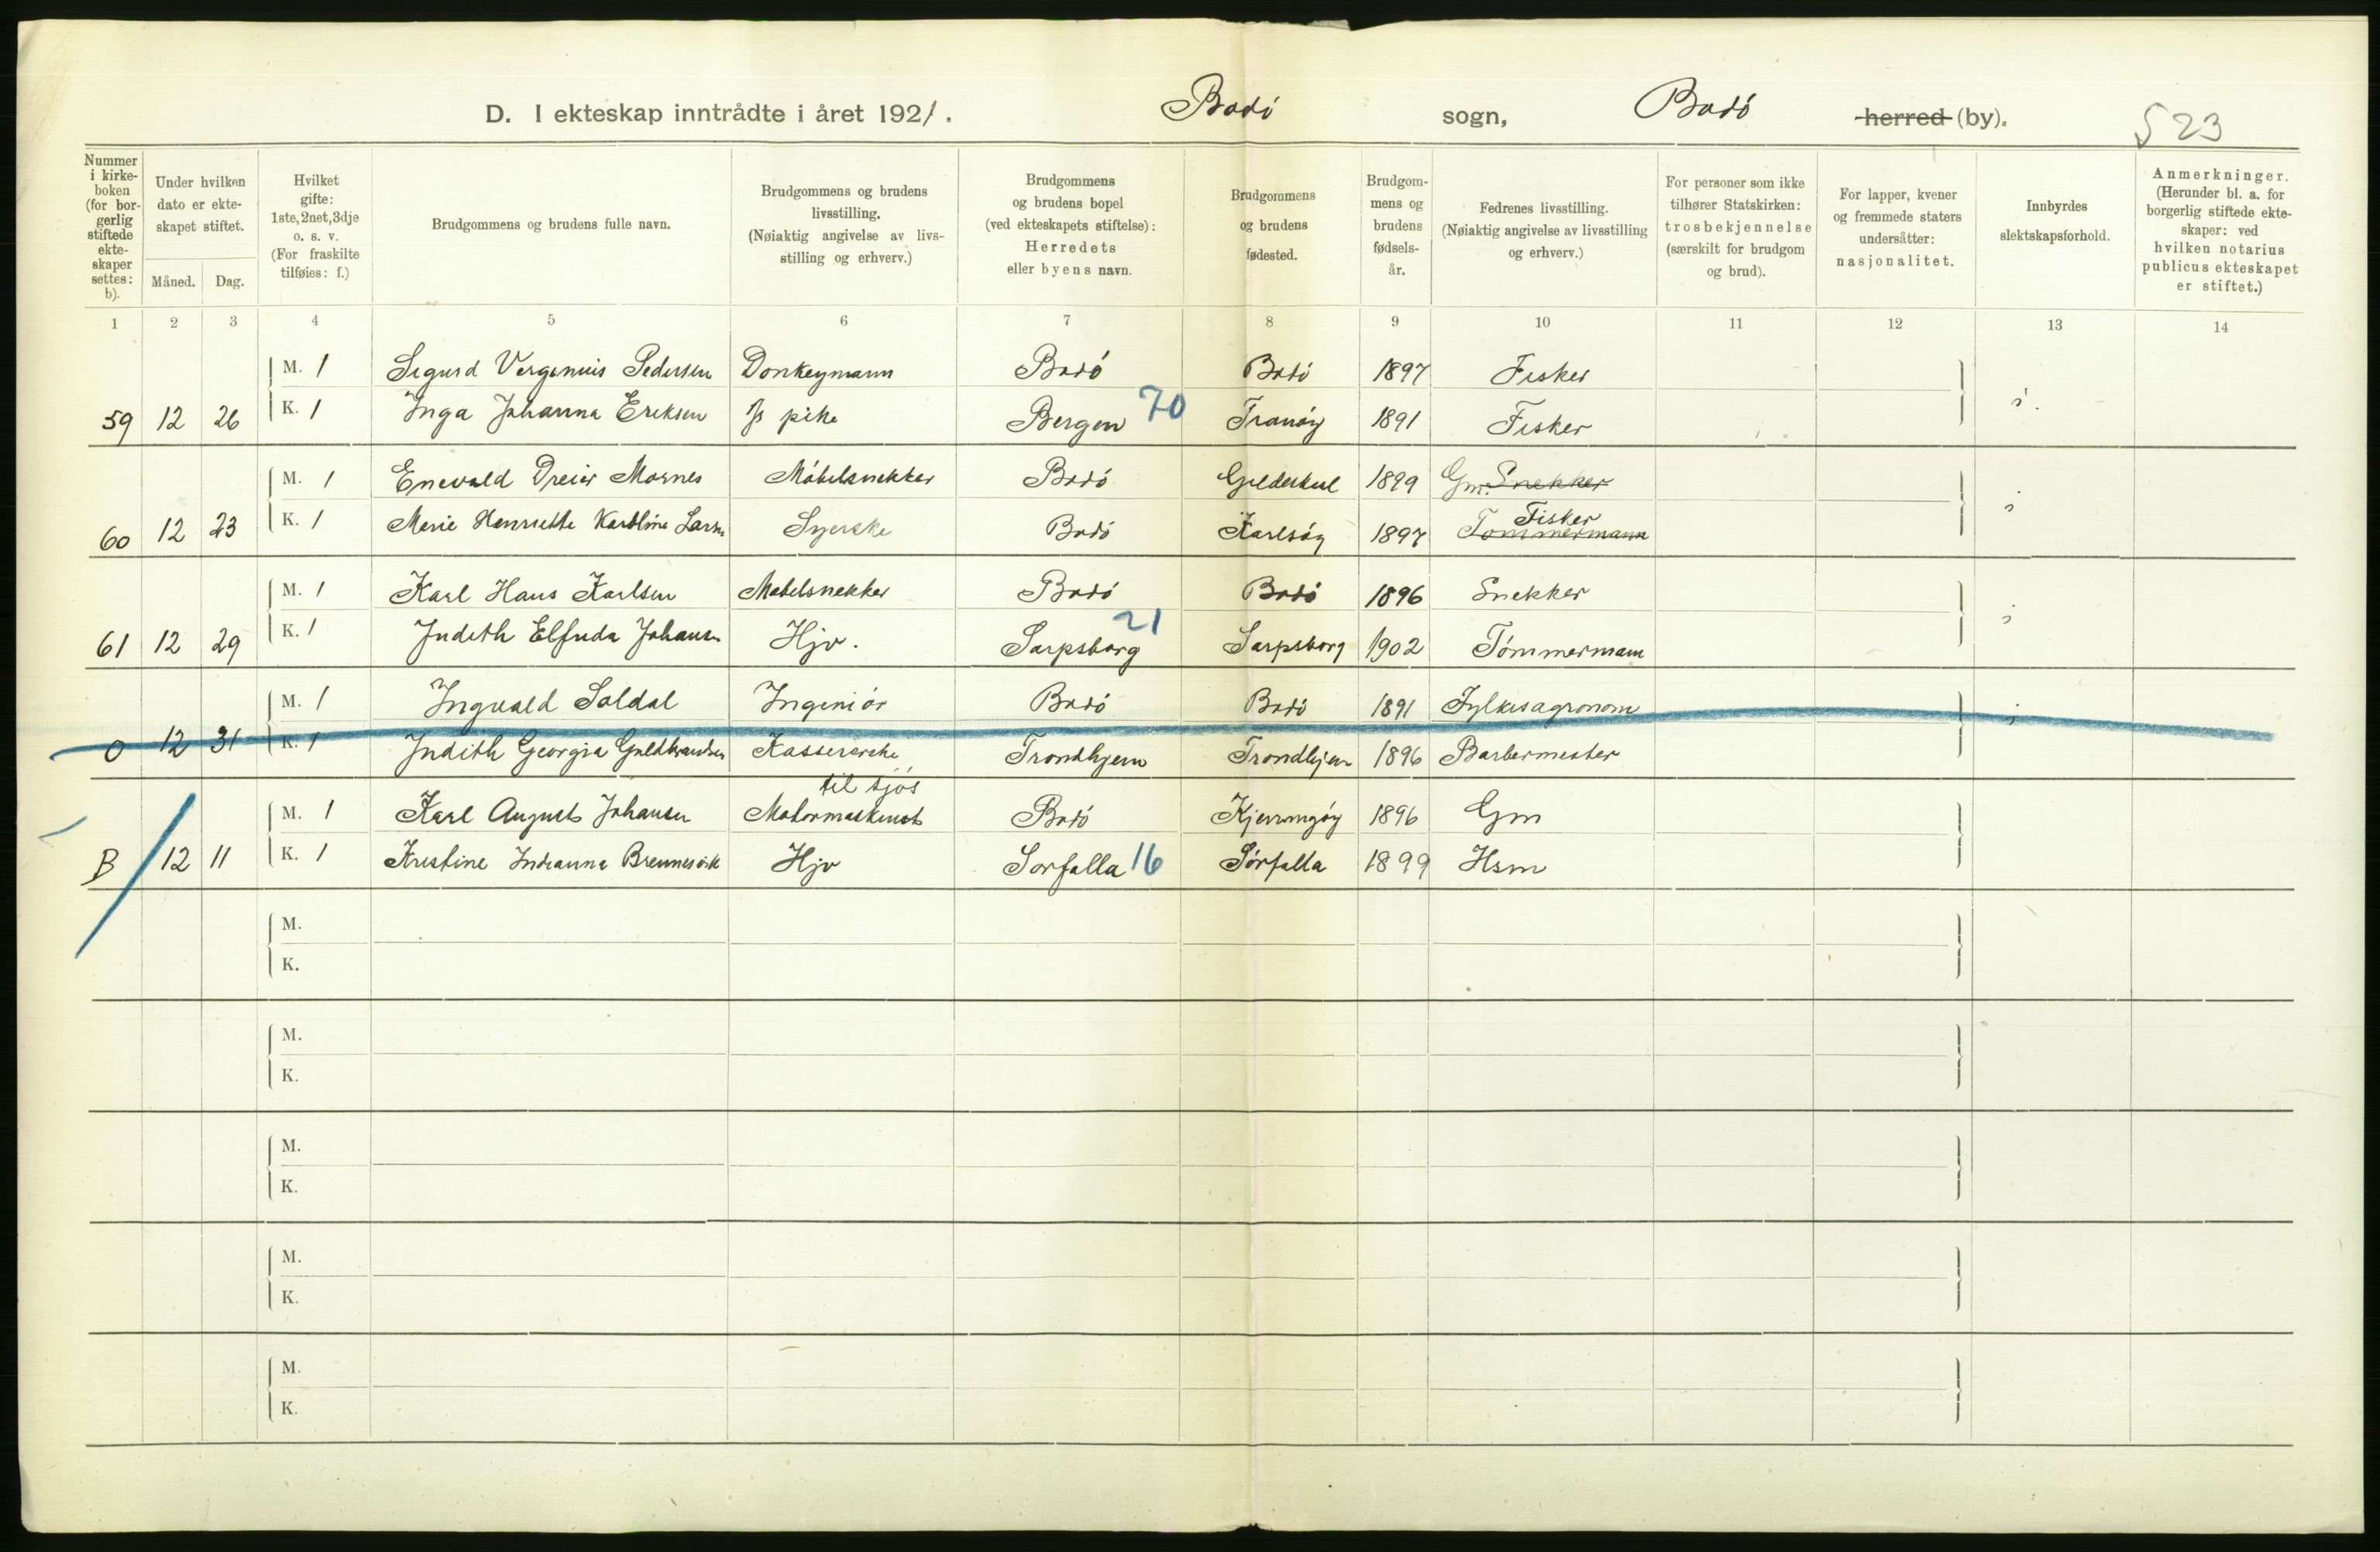 D. I ekteskap inntrådte i året 1921. Bodö sogn, Bodö herred (by). 523
Nummer i kirke- boken (for bor- gerlig stiftede ekte- skaper settes: b).
Under hvilken dato er ekte- skapet stiftet.
Måned. Dag.
Hvilket gifte: 1ste, 2net, 3dje o. s. v. (For fraskilte tilføies: f.)
Brudgommens og brudens fulle navn.
Brudgommens og brudens livsstilling. (Nøiaktig angivelse av livs- stilling og erhverv.)
Brudgommens og brudens bopel (ved ekteskapets stiftelse): Herredets eller byens navn.
Brudgommens og brudens fødested.
Brudgom- mens og brudens fødsels- år.
Fedrenes livsstilling. (Nøiaktig angivelse av livsstilling og erhverv.)
For personer som ikke tilhører Statskirken: trosbekjennelse (særskilt for brudgom og brud).
For lapper, kvener og fremmede staters undersåtter: nasjonalitet.
Innbyrdes slektskapsforhold.
Anmerkninger. (Herunder bl. a. for borgerlig stiftede ekte- skaper: ved hvilken notarius publicus ekteskapet er stiftet.)
1 2 3 4 5 6 7 8 9 10 11 12 13 14
M. 1 Sigurd Verginius Pedersen Donkeymann Bodö Bodö 1897 Fisker
59 12 26 K. 1 Inga Johanna Eriksen pike Bergen 70 Tranöy 1891 Fisker i.
M. 1 Enevald Dreier Mornes Möbelsnekker Bodö Gildeskul 1899 Gm. Snekker
Fisker
60 12 23 K. 1 Marie Henriette Karoline Larsn Syerske Bodö Karlsöy 1897 Tømmermann i
M. 1 Karl Hans Karlsen Mobelsnekker Bodö Bodö 1896 Snekker
61 12 29 K. 1 Judith Elfrida Johansn Hjv. Sarpsborg 21 Sarpsborg 1902 Tömmermann i
M. 1 Ingvald Soldal Ingeniör Bodö Bodö 1891 Fylkesagronom
0 12 31 K. 1 Judith Georgia Guldbrandsen Kassererske Trondhjem Trondhjem 1896 Barbermester i
til sjös
M. 1 Karl August Johansen Motormaskinist Bodö Kjerringöy 1896 Gm
B 12 11 K. 1 Kristine Indianna Brennesvik Hjv Sorfolla 16 Sörfolla 1899 Hsm
M.
K.
M.
K.
M.
K.
M.
K.
M.
K.